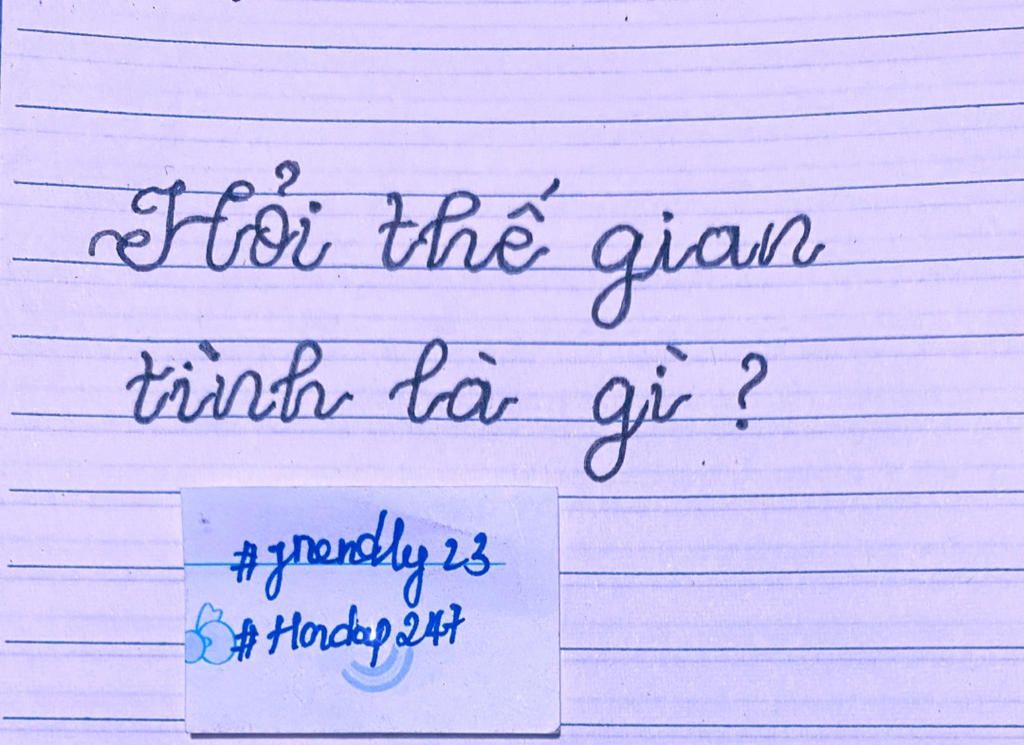 Hỏi thế gian
tình là gì ?
#friendly 23
#Hoidap247